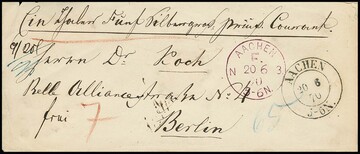 Ein Thaler Fünf Silbergros. preuß. Courant.
9/20
Herrn Dr. Koch
Belle Alliancestraße No. 4
frei
Berlin
7
AACHEN
F.
N 20 6 3
70
6-7N.
AACHEN
20 6
70